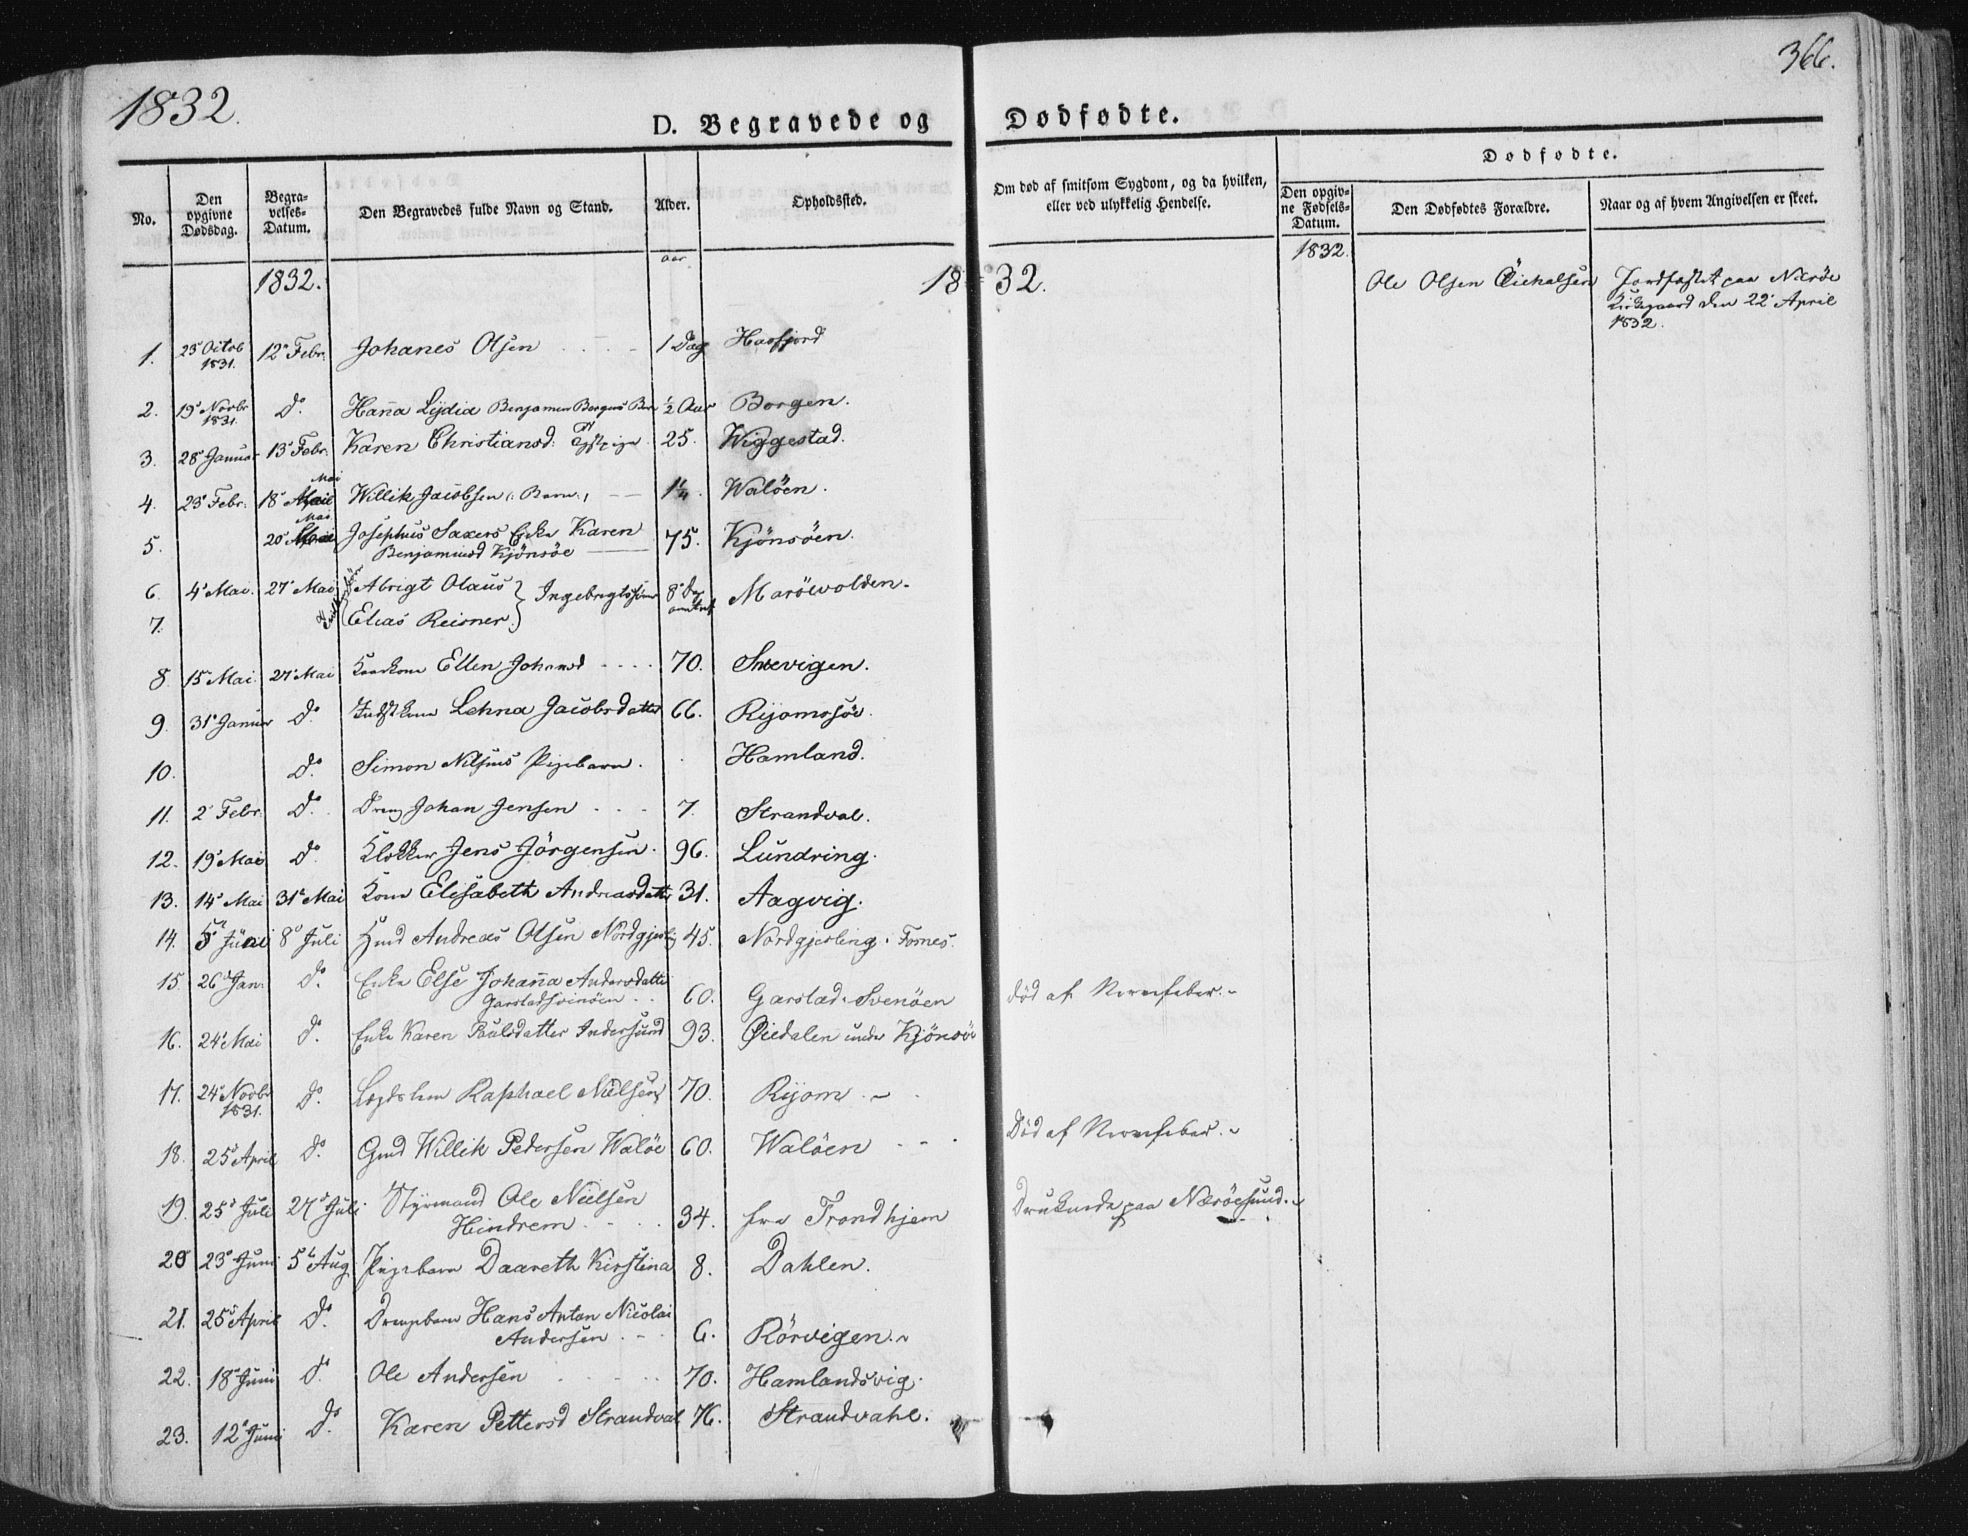 1832.
366.
D. Begravede og Dødfødte.
No.
Den opgivne Dødsdag.
Begravelses-Datum.
Den Begravedes fulde Navn og Stand.
Alder.
Opholdssted.
Om død af smitsom Sygdom, og da hvilken, eller ved ulykkelig Hendelse.
Dødfødte.
Den opgivne Fødsels-Datum.
Den Dødfødtes Forældre.
Naar og af hvem Angivelsen er skeet.
aar
1832.
1832.
1832
Ole Olsen
Jordfæstet paa Nærøe
Kirkegaard den 22 April
1832.
1. 25 Octob 1831. 12 Febr. Johanes Olsen 1 Dag Haafjord
2. 19 Novbr 1831. do. Hanna Lydia Benjamin Borgens Barn ½ Aar Borgen.
3. 28 Januar 13 Febr. Karen Christiansd. 25. Wiggestad.
4. 23 Febr. 18 Mai Willik Jacobsen (: Barn :) 1¼. Walöen.
5. 20 Mai Josephus Saxers Enke Karen
Benjaminsd Kjönsöe 75. Kjönsöen.
6. 4 Mai. 27 Mai Tvillinger Abrigt Olaus } Ingebrigtsönner 8 Dag Maröevolden.
7. Elias Reisner.
8. 15 Mai. 27 Mai Kaarkone Ellen Johansd 70. Snevigen.
9. 31 Januar do. Indstkone Lehna Jacobsdatter 66. Ryomssöe.
10. do. Simon Nilsens Pigebarn. Hamland.
11. 2 Febr. do. Dreng Johan Jensen 7. Strandval.
12. 19 Mai do. Klokker Jens Jörgensen. 96. Lundring.
13. 14 Mai 31 Mai Kone Elisabeth Andreasdatter 31. Aagvig.
14. 5 Juni 8 Juli Gmd Andreas Olsen Nordgjerling 45. Nordgjerling i Fornes.
15. 26 Jan. do. Enke Else Johanna Andersdatter
Garstadsvinöen 60. Garstad-Svenöen död af Nervefeber.
16. 24 Mai do. Enke Karen Poulsdatter Indersund 93. Øiedalen under Kjönsöe
17. 24 Novbr 1831. do. Lægdslem Raphael Nielsen 70. Ryom.
18. 25 April do. Gmd Willik Pedersen Walöe 60. Walöen Död af Nervefeber.
19. 25 Juli 27 Juli Styrmand Ole Nielsen
Hindrem 34. fra Trondhjem Druknede paa Nærøesund.
20 23 Juni 5 Aug Pigebarn Daareth Kirstina 8. Dahlen.
21. 25 April do. Drengebarn Hans Anton Nicolai
Andersen 6. Rörvigen.
22. 18 Juni do. Ole Andersen 70. Hamlandsvig.
23. 12 Juni do. Karen Pettersd Strandval 76. Strandvahl.